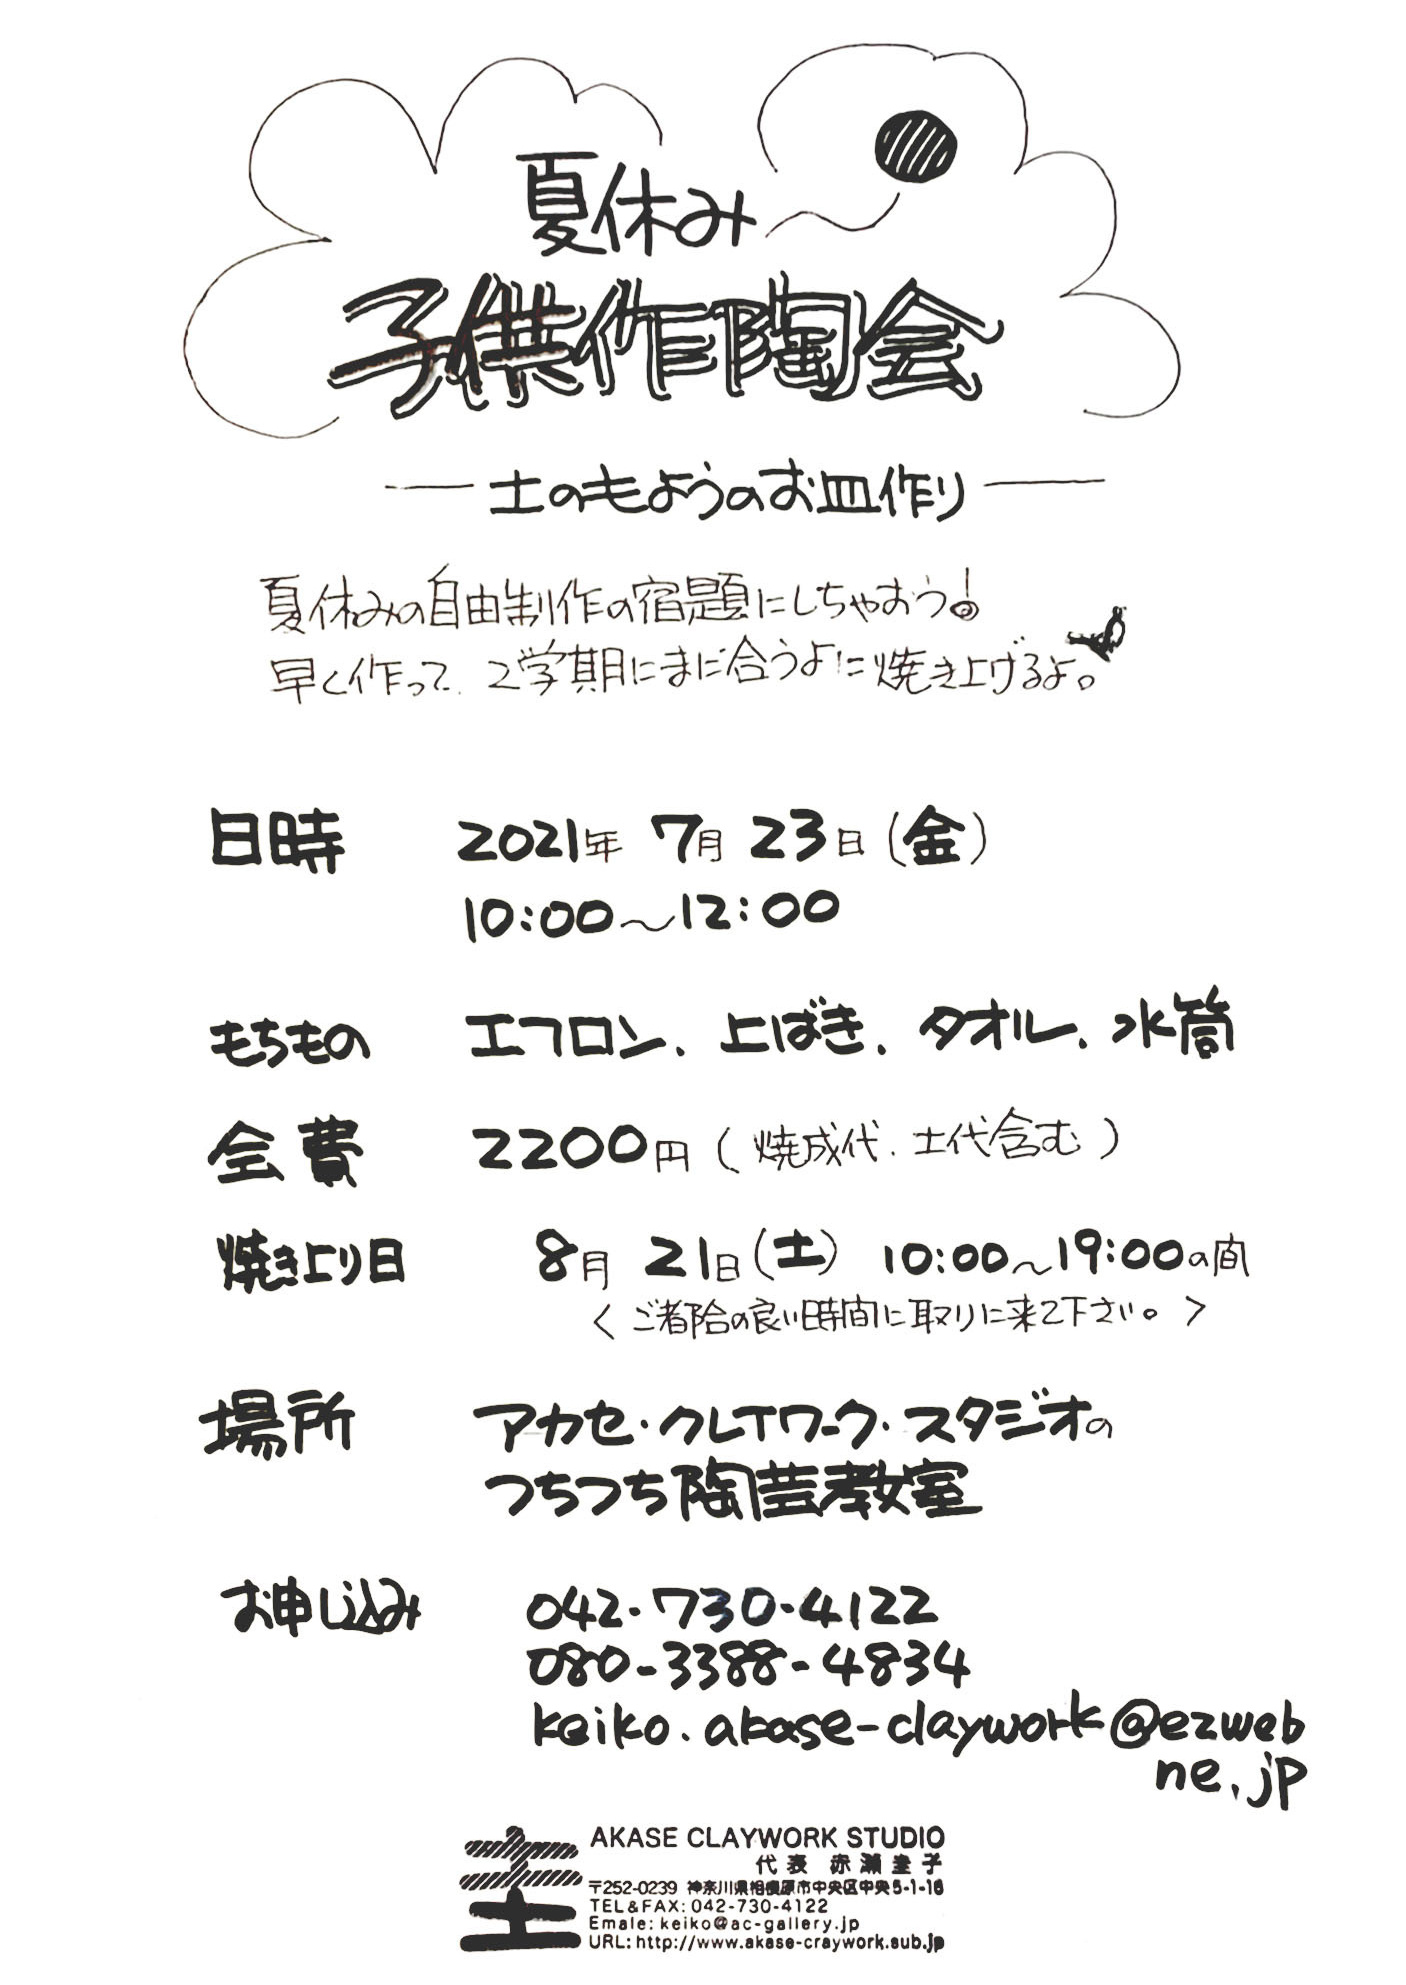 夏休み
子供作陶会
土のもようのお皿作り
夏休みの自由制作の宿題にしちゃおう!
早く作って、2学期にまに合うよに焼き上げるよ。
日時 2021年 7月 23日(金)
10:00〜12:00
もちもの エフロン、上ばき、タオル、水筒
会費 2200円(焼成代、土代含む)
焼き上り日 8月 21日(土) 10:00〜19:00の間
<ご都合の良い時間に取りに来て下さい。>
場所 アカセ・クレイワーク・スタジオの
つちつち陶芸教室
お申し込み 042-730-4122
080-3388-4834
keiko.akase-claywork@ezweb
ne.jp
AKASE CLAYWORK STUDIO
代表 赤瀬圭子
〒252-0239 神奈川県相模原市中央区中央5-1-16
TEL&FAX:042-730-4122
Emale:keiko@ac-gallery.jp
URL:http://www.akase-craywork.sub.jp